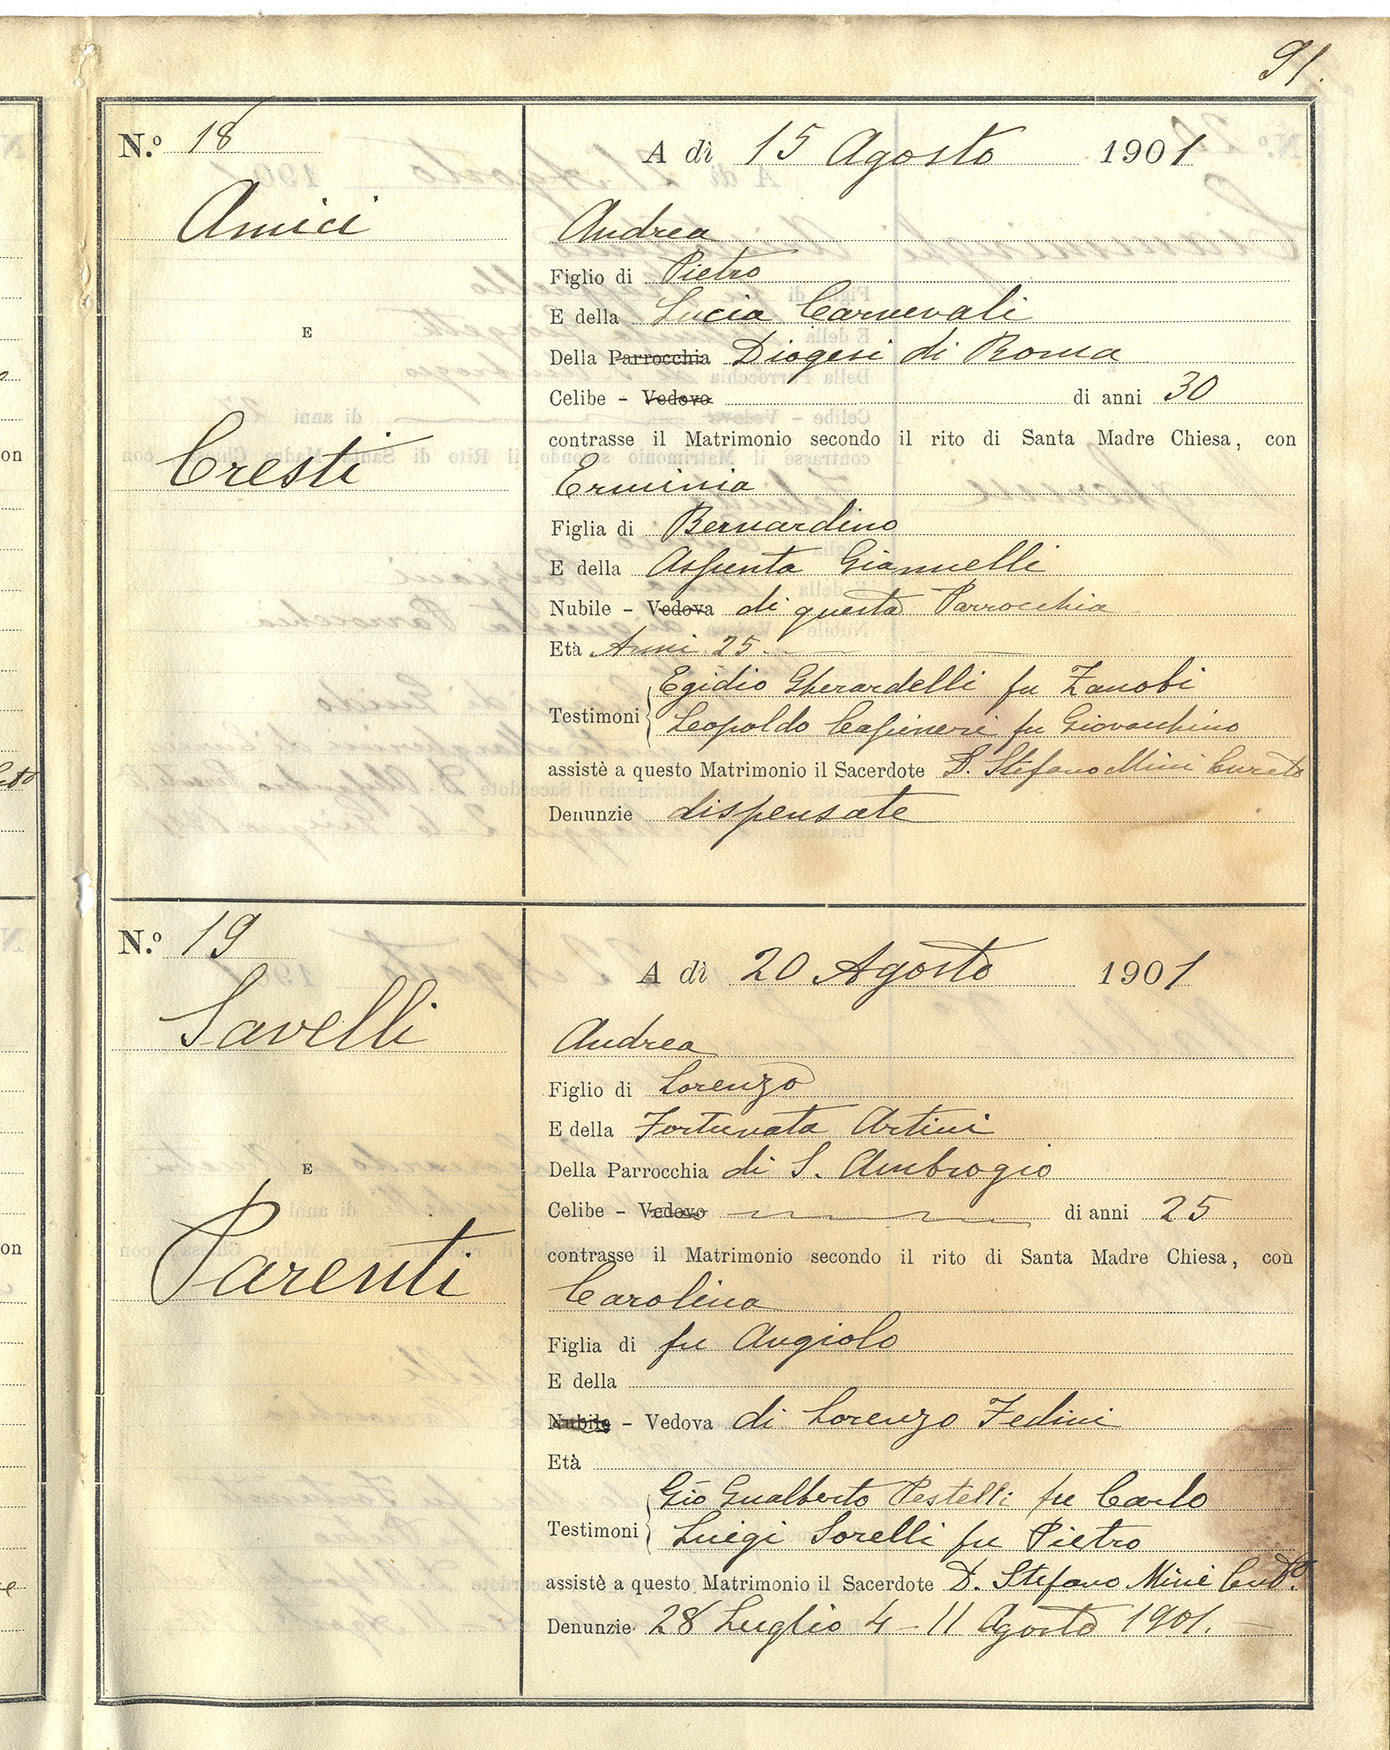 91.
N.º 18
A dì 15 Agosto 1901
Amici
Andrea
Figlio di Pietro
E della Lucia Carnevali
E
Della Parrocchia Diogesi di Roma
Celibe - Vedovo di anni 30
contrasse il Matrimonio secondo il rito di Santa Madre Chiesa, con
Cresti
Erminia
Figlia di Bernardino
E della Assunta Giannelli
Nubile - Vedova di questa Parrocchia
Età Anni 25.
Egidio Gherardelli fu Zanobi
Testimoni
Leopoldo fu Giovacchino
assistè a questo Matrimonio il Sacerdote D. Stefano Mini Curato
Denunzie dispensate
N.º 19
A dì 20 Agosto 1901
Savelli
Andrea
Figlio di Lorenzo
E della Fortunata Artini
E
Della Parrocchia di S. Ambrogio
Celibe - Vedovo di anni 25
contrasse il Matrimonio secondo il rito di Santa Madre Chiesa, con
Parenti
Carolina
Figlia di fu Angiolo
E della
Nubile - Vedova di Lorenzo Fedini
Età
Gio Gualberto Pestelli fu Carlo
Testimoni
Luigi Sorelli fu Pietro
assistè a questo Matrimonio il Sacerdote D. Stefano Mini Cur.to
Denunzie 28 Luglio 4 - 11 Agosto 1901.